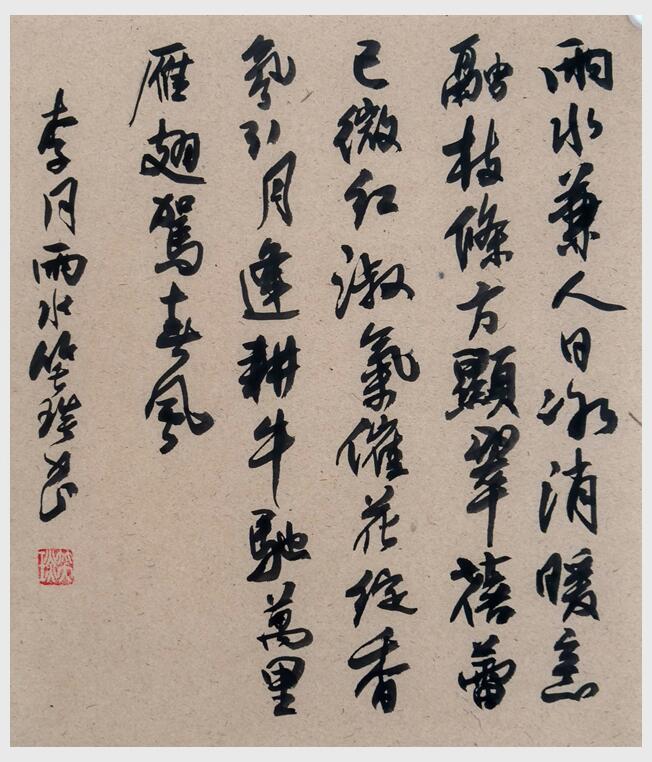 雨水兼人日冰消暖意
融枝條方顯翠蓓蕾
已微紅淑氣催花綻香
氛引月逢耕牛馳萬里
雁翅駕春風
李月雨水書